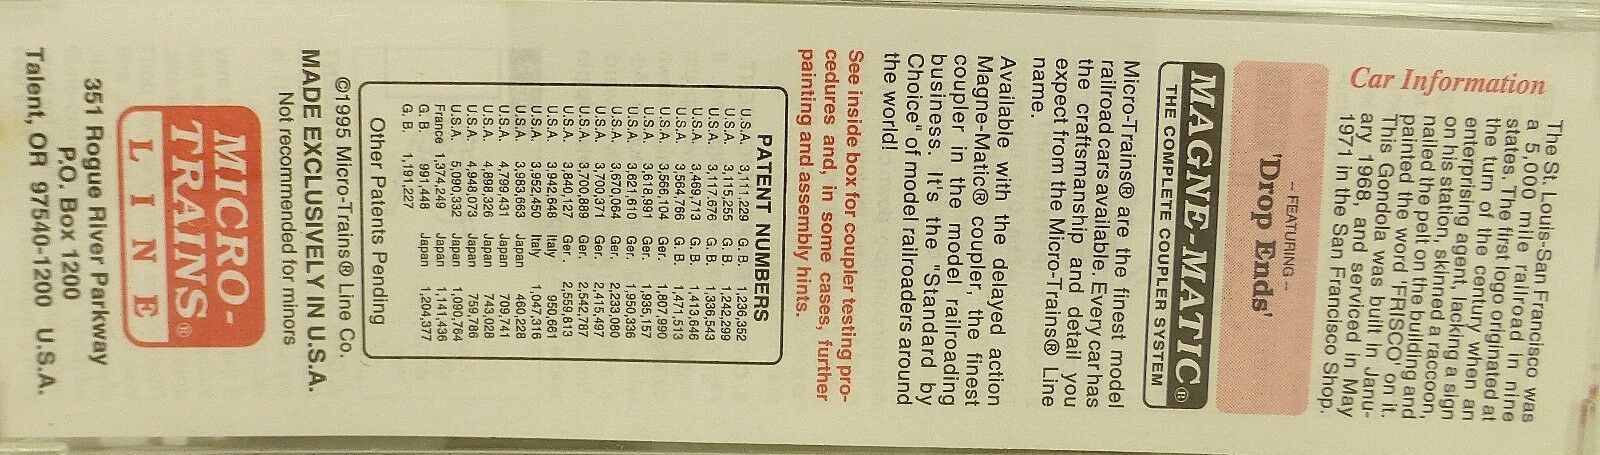 Car Information
The St. Louis-San Francisco was
a 5,000 mile railroad in nine
states. The first logo originated at
the turn of the century when an
enterprising agent, lacking a sign
on his station, skinned a raccoon,
nailed the pelt on the building and
painted the word 'FRISCO' on it.
This Gondola was built in Janu-
ary 1968, and serviced in May
1971 in the San Francisco Shop.
– FEATURING –
'Drop Ends'
MAGNE-MATIC®
THE COMPLETE COUPLER SYSTEM
Micro-Trains® are the finest model
railroad cars available. Every car has
the craftsmanship and detail you
expect from the Micro-Trains® Line
name.
Available with the delayed action
Magne-Matic® coupler, the finest
coupler in the model railroading
business. It's the "Standard by
Choice" of model railroaders around
the world!
See inside box for coupler testing pro-
cedures and, in some cases, further
painting and assembly hints.
PATENT NUMBERS
U.S.A. 3,111,229 G. B. 1,236,352
U.S.A. 3,115,255 G. B. 1,242,299
U.S.A. 3,117,676 G. B. 1,336,543
U.S.A. 3,469,713 G. B. 1,413,646
U.S.A. 3,564,766 G. B. 1,471,513
U.S.A. 3,566,104 Ger. 1,807,990
U.S.A. 3,618,991 Ger. 1,935,157
U.S.A. 3,621,610 Ger. 1,950,336
U.S.A. 3,670,064 Ger. 2,233,080
U.S.A. 3,700,371 Ger. 2,415,497
U.S.A. 3,700,889 Ger. 2,542,787
U.S.A. 3,840,127 Ger. 2,559,813
U.S.A. 3,942,648 Italy 950,661
U.S.A. 3,952,450 Italy 1,047,316
U.S.A. 3,983,663 Japan 460,228
U.S.A. 4,799,431 Japan 709,741
U.S.A. 4,898,326 Japan 743,028
U.S.A. 4,948,073 Japan 759,786
U.S.A. 5,090,332 Japan 1,090,784
France 1,374,249 Japan 1,141,436
G. B. 991,448 Japan 1,204,377
G. B. 1,191,227
Other Patents Pending
©1995 Micro-Trains® Line Co.
MADE EXCLUSIVELY IN U.S.A.
Not recommended for minors
MICRO-
TRAINS®
LINE
351 Rogue River Parkway
P.O. Box 1200
Talent, OR 97540-1200 U.S.A.